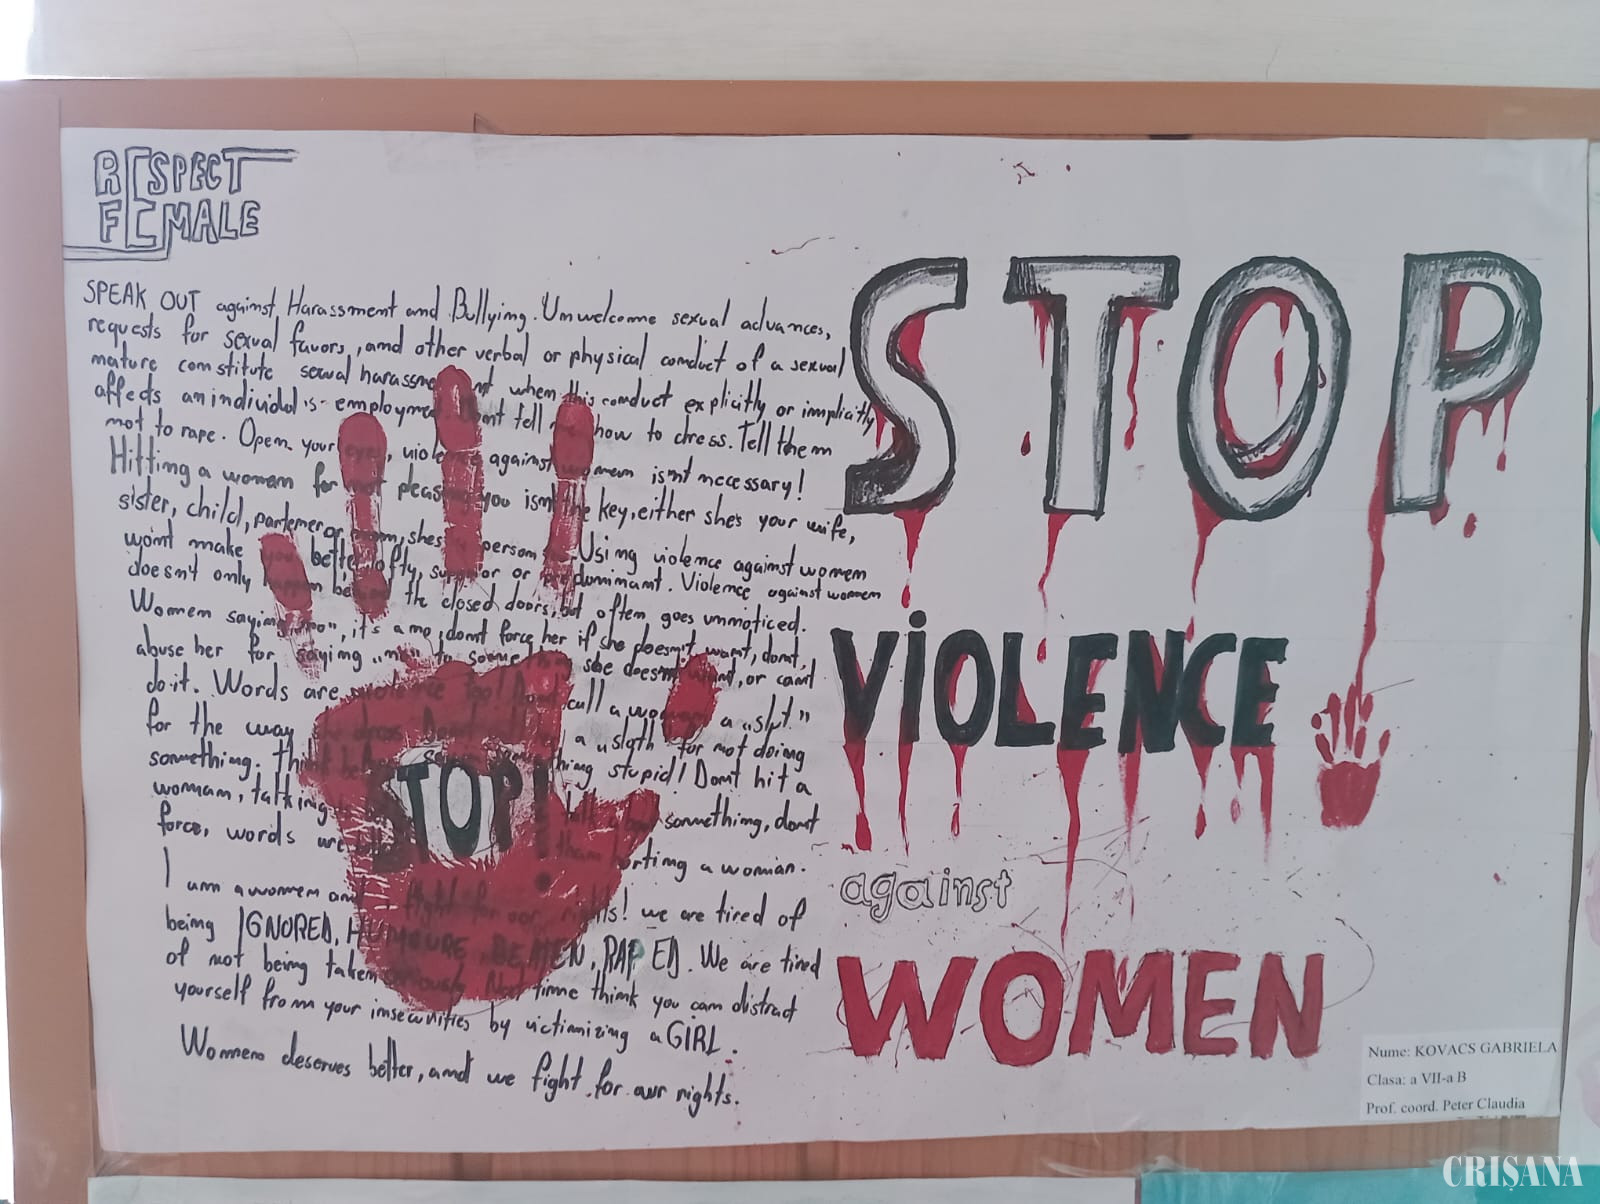 RESPECT
FEMALE
SPEAK OUT against Harassment and Bullying. Unwelcome sexual advances,
requests for sexual favors, and other verbal or physical conduct of a sexual
nature constitute sexual harassment when this conduct explicitly or implicitly
affects an individul is employment. Dont tell me how to dress. Tell them
not to rape. Open your eyes, violence against women isnt necessary!
Hitting a woman for not pleasing you isnt the key, either she's your wife,
sister, child, partener or mom, shes a person
wont make you better, lofty, superior or predominant. Using violence against women
doesn't only happen behind the closed doors, but often goes unnoticed. Violence against women
Women saying "no", it's a no, dont force her if she doesn't want, dont
abuse her for saying „no" to something she doesnt want, or cant
do it. Words are violence too! Dont call a woman a „slut"
for the way she dress. Dont call a „sloth" for not doing
something. Think before saying something stupid! Dont hit a
woman, talking talk about something, dont
force, words are than horting a woman.
I am a women and fight for our rights! we are tired of
being IGNORED, HUMOURE, BEATEN, RAPED. We are tired
of not being taken seriously. Next time think you can distract
yourself from your insecurities by victimizing a GIRL.
Women deserves better, and we fight for our rights.
STOP!
STOP
VIOLENCE
against
WOMEN
Nume: KOVACS GABRIELA
Clasa: a VII-a B
Prof. coord. Peter Claudia
CRISANA